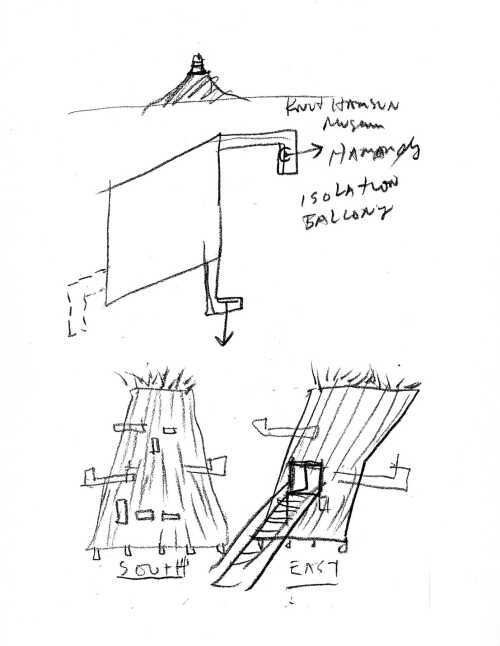 KNUT HAMSUN
Museum
HAMARØY
ISOLATION
BALCONY
SOUTH
EAST